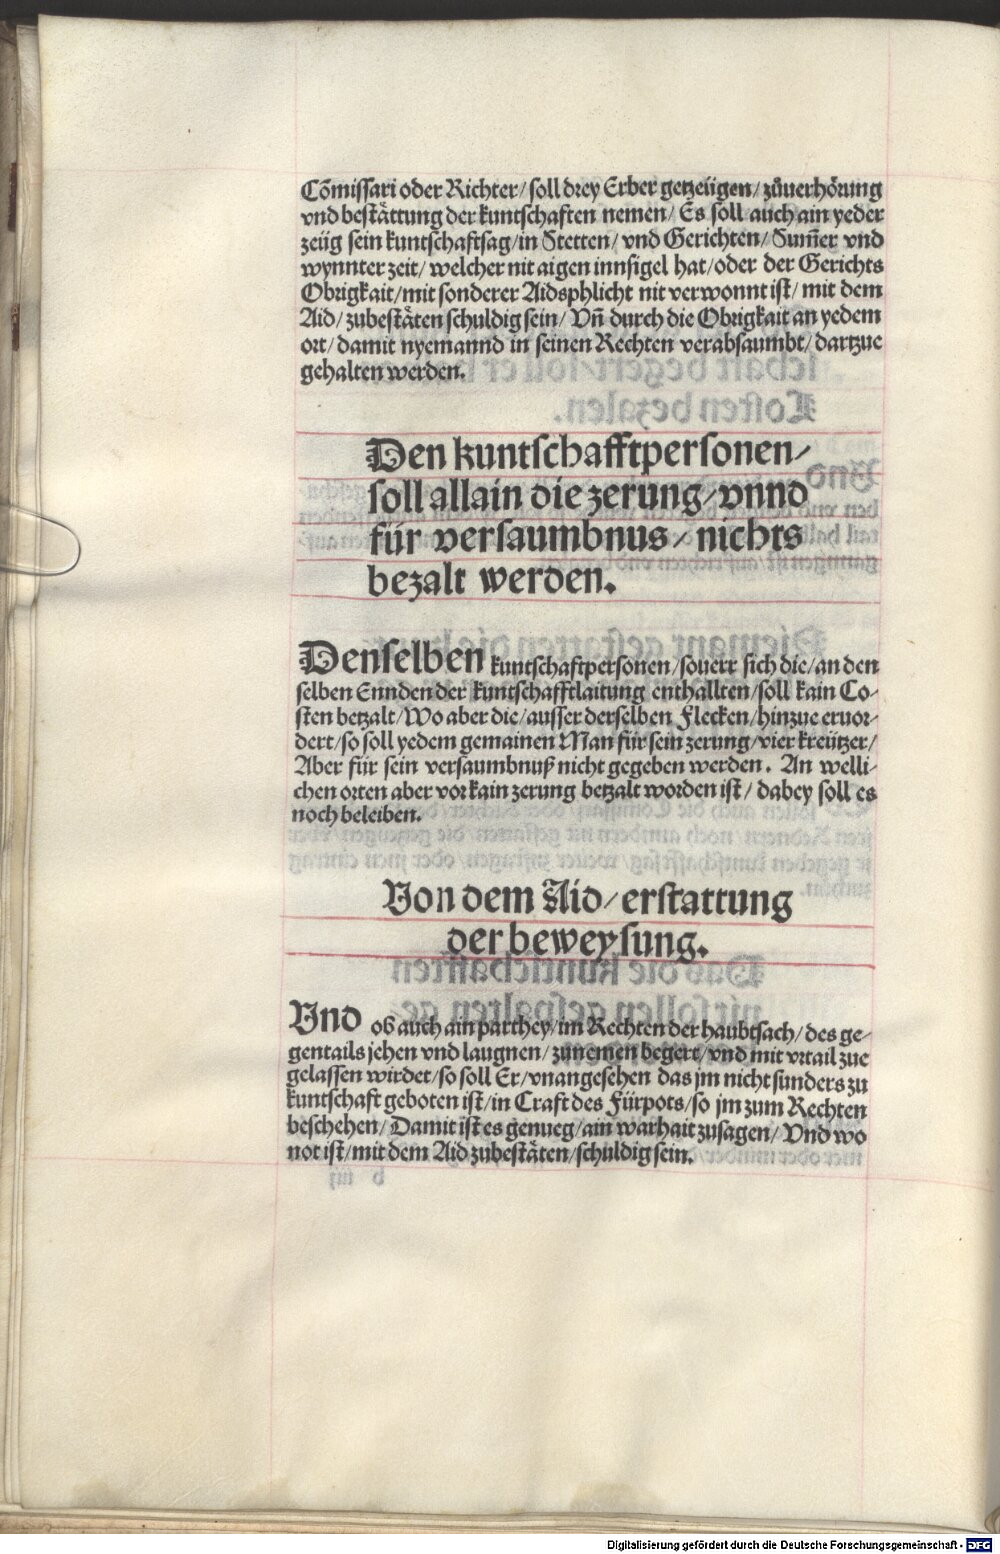 Cõmissari oder Richter/ soll drey Erber getzeügen/ zůuerhörung
vnd bestättung der kuntschaften nemen/ Es soll auch ain yeder
zeüg sein kuntschaftsag/ in Stetten/ vnd Gerichten/ Sum̃er vnd
wynnter zeit/ welcher nit aigen innsigel hat/ oder der Gerichts
Obrigkait/ mit sonderer Aidsphlicht nit verwonnt ist/ mit dem
Aid/ zubestäten schuldig sein/ Vn̄ durch die Obrigkait an yedem
ort/ damit nyemannd in seinen Rechten verabsaumbt/ dartzue
gehalten werden.
Den kuntschafftpersonen/
soll allain die zerung/ vnnd
für versaumbnus/ nichts
bezalt werden.
Denselben kuntschaftpersonen/ souerr sich die/ an den
selben Ennden der kuntschafftlaitung enthallten/ soll kain Co-
sten betzalt/ Wo aber die/ ausser derselben Flecken/ hinzue eruor-
dert/ so soll yedem gemainen Man für sein zerung/ vier kreützer/
Aber für sein versaumbnuß nicht gegeben werden. An welli-
chen orten aber vor kain zerung betzalt worden ist/ dabey soll es
noch beleiben.
Von dem Aid/ erstattung
der beweysung.
Vnd ob auch ain parthey/ im Rechten der haubtsach/ des ge-
gentails jehen vnd laugnen/ zunemen begert/ vnd mit vrtail zue
gelassen wirdet/ so soll Er/ vnangesehen das jm nicht sunders zu
kuntschaft geboten ist/ in Craft des Fürpots/ so jm zum Rechten
beschehen/ Damit ist es genueg/ ain warhait zusagen/ Vnd wo
not ist/ mit dem Aid zubestäten/ schuldig sein.
Digitalisierung gefördert durch die Deutsche Forschungsgemeinschaft - DFG